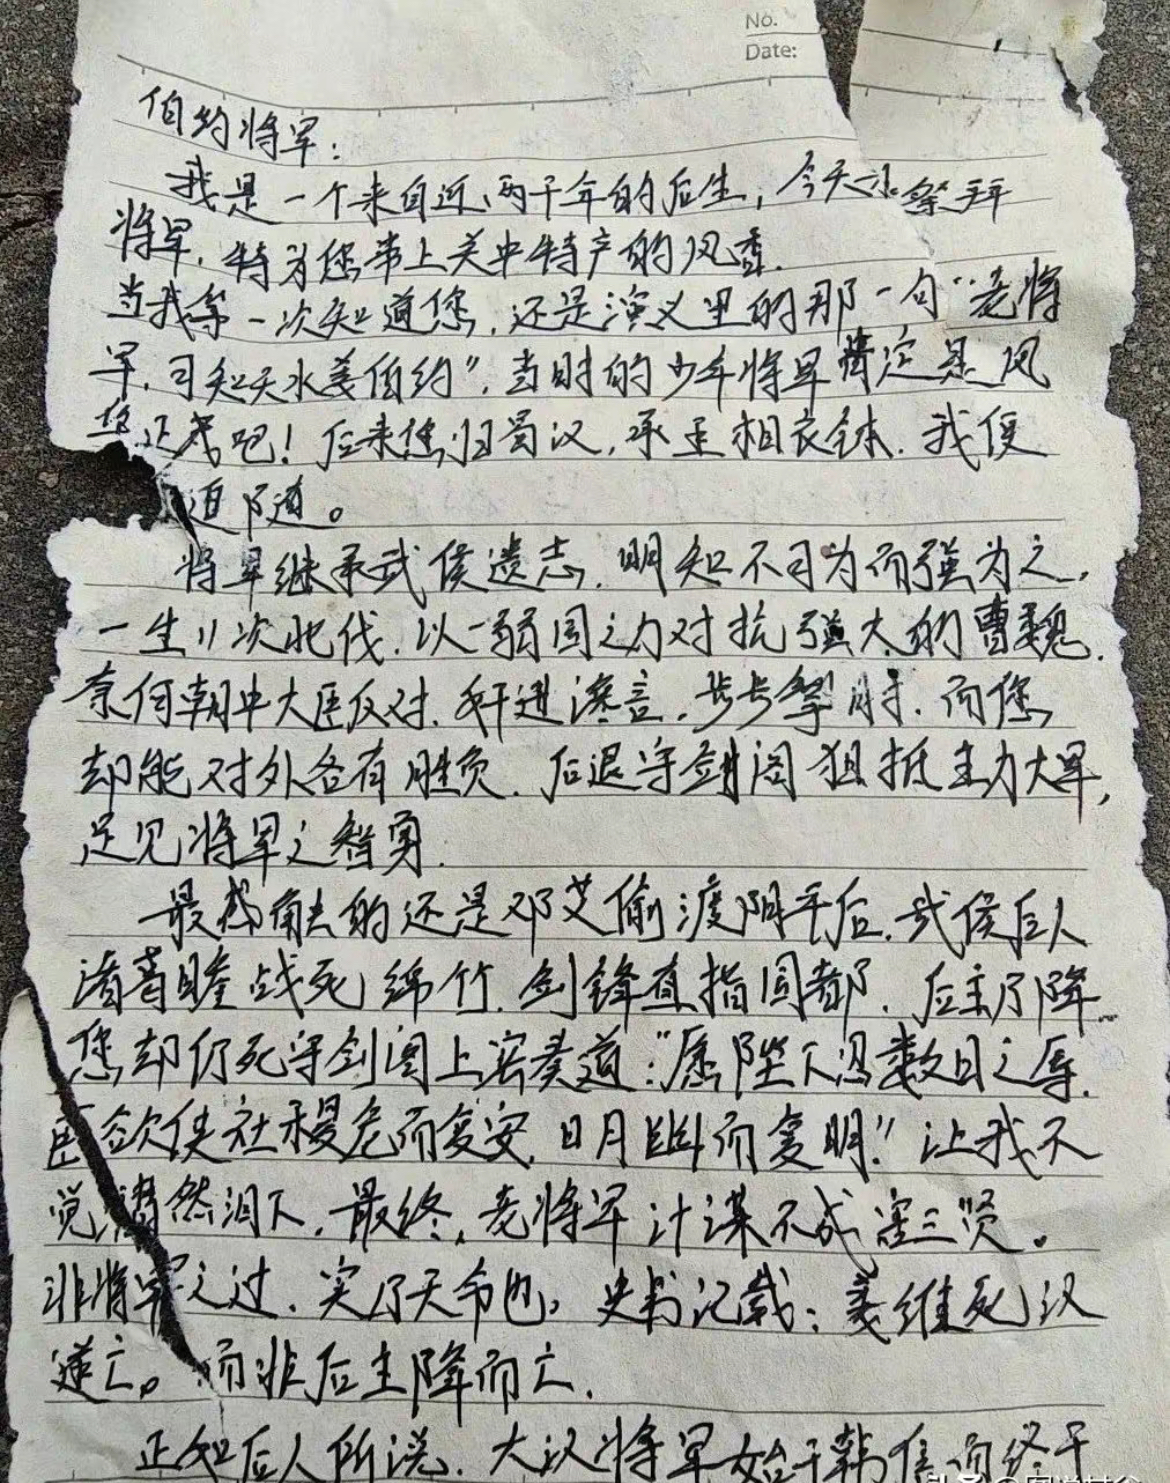 No.
Date:
伯约将军：
我是一个来自近两千年的后生，今天来祭拜
将军，特为您带上关中特产的风香.
当我第一次知道您，还是演义里的那一句“老将
军，可知天水姜伯约”，当时的少年将军肯定是风
华正茂吧！后来您归蜀汉，承丞相衣钵.我便
追随。
将军继承武侯遗志，明知不可为而强为之，
一生11次北伐.以一弱国之力对抗强大的曹魏.
奈何朝中大臣反对.奸进谗言，步步掣肘.而您
却能对外各有胜负.后退守剑阁狙抵主力大军，
足见将军之智勇.
最感触的还是邓艾偷渡阴平后.武侯后人
诸葛瞻战死绵竹.剑锋直指国都.后主乃降
您却仍死守剑阁上密奏道：“愿陛下忍数日之辱.
臣欲使社稷危而复安，日月幽而复明！”让我不
觉潸然泪下，最终，老将军计谋不成害三贤。
非将军之过.实乃天命也。史书记载：姜维死汉
遂亡。而非后主降而亡.
正如后人所说.大汉将军始于韩信而终于